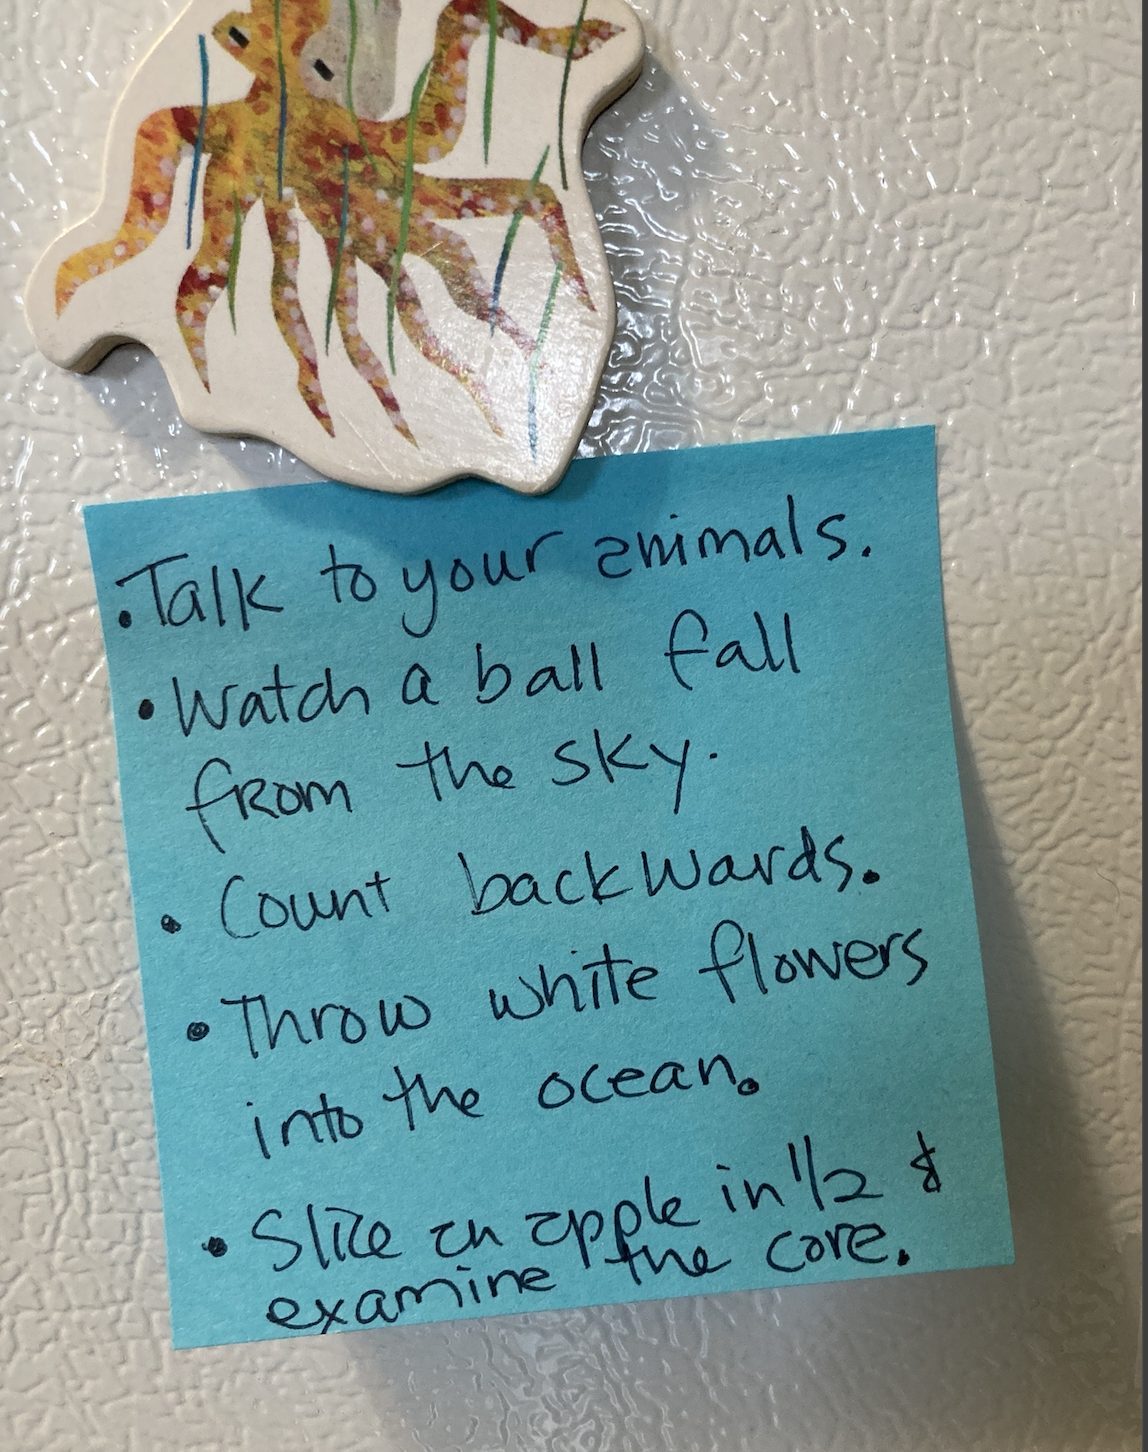 • Talk to your animals.
• Watch a ball fall
from the sky.
• Count backwards.
• Throw white flowers
into the ocean.
• Slice an apple in 1/2 &
examine the core.